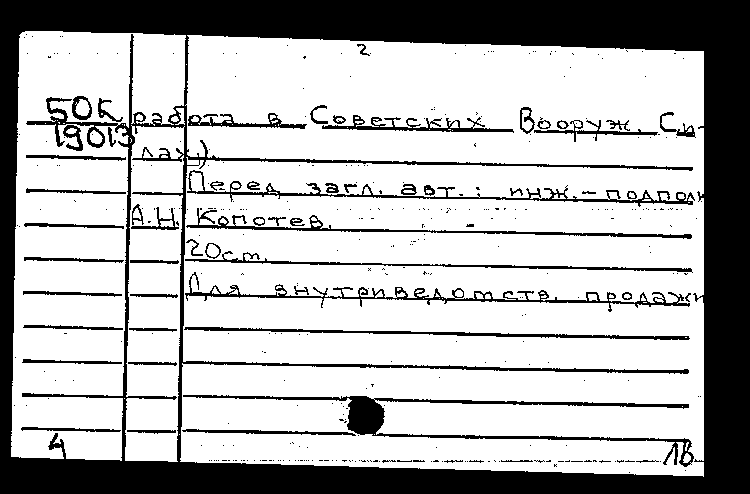 2
50к работа в Советских Вооруж. Си-
19013 лах).
Перед загл. авт.: инж.-подполк
А.Н. Копотев.
20см.
Для внутриведомств. продажи
4 1В